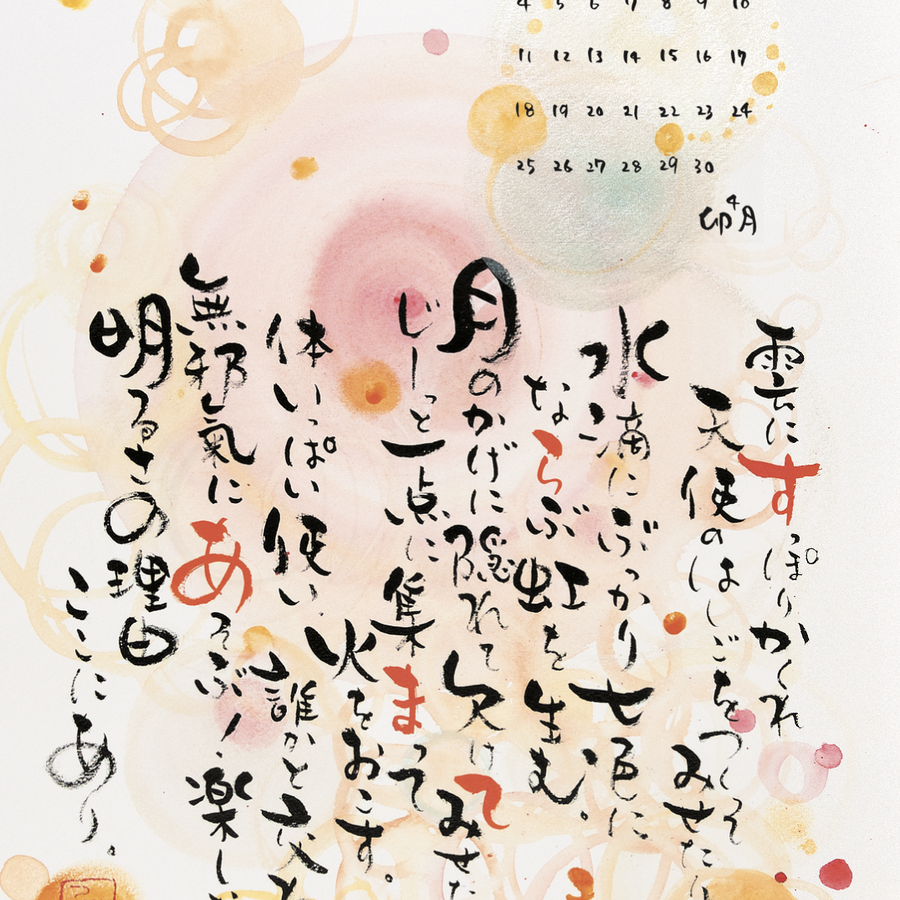 4 5 6 7 8 9 10
11 12 13 14 15 16 17
18 19 20 21 22 23 24
25 26 27 28 29 30
卯4月
雲にすっぽりかくれ
天使のはしごをつくってみせたり
水滴にぶつかり七色に
ならぶ虹を生む。
月のかげに隠れて欠けてみせた
じーっと一点に集まって
火をおこす。
体いっぱい使い、
誰かと交わ
無邪氣にあそぶ!楽し
明るさの理由
ここにあり。